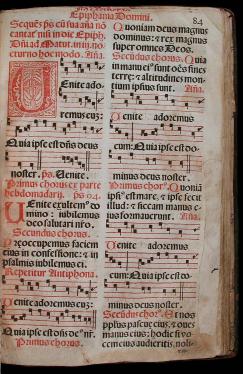 Epiphania Domini. 84
Sequēs ps cū sua añā nō
cantaĩ nisi in die Epiph.
Dñi ad Matut. in iij. no
cturno hoc modo. Añā.
Uenite ado
remus eū:
Quia ipse est dñs deus
noster. ps. Venite.
Primus chorus ex parte
hebdomadarij. ps 94.
Uenite exultem⁹ do
mino: iubilemus
deo salutari nr̄o.
Secundus chorus.
Preoccupemus faciem
eius in confessione: & in
psalmis iubilemus ei.
Repetitur Antiphona.
Uenite adoremus eū:
Quia ipse est dñs de⁹ nr̄.
Primus chorus.
Quoniam deus magnus
dominus: & rex magnus
super omnes Deos.
Secundus chorus. Quia
in manu ei⁹ sunt oēs fines
terre: & altitudines mon
tium ipsius sunt. Añā.
Uenite adoremus
eum: Quia ipse est do
minus deus noster.
Primus chor⁹. Quoniā
ipsi⁹ est mare, & ipse fecit
illud: & siccam manus e
ius formauerunt. Añā.
Uenite adoremus
eum: Quia ipse est do
minus deus noster.
Secūdus chor⁹. Et nos
pop̄lus pascue eius, & oues
manus eius: hodie si vo
cem eius audieritis, noli